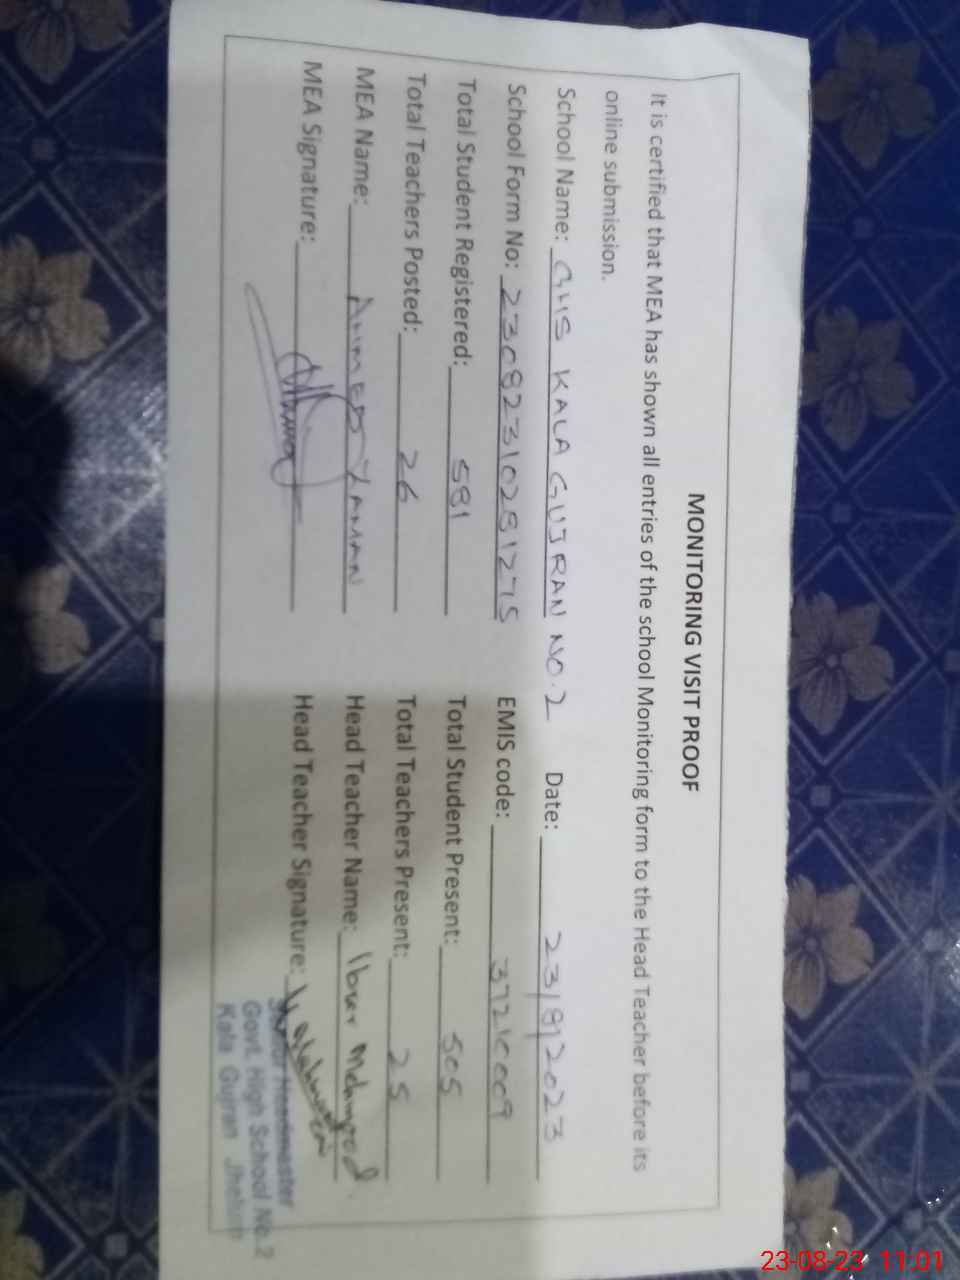 MONITORING VISIT PROOF
It is certified that MEA has shown all entries of the school Monitoring form to the Head Teacher before its
online submission.
School Name: GHS KALA GUJRAN NO.2 Date: 23/8/2023
School Form No: 230823102812715 EMIS code: 37210009
Total Student Registered: 581 Total Student Present: 505
Total Teachers Posted: 26 Total Teachers Present: 25
MEA Name: AHMED ZAMAN Head Teacher Name:
MEA Signature: Head Teacher Signature:
Senior Headmaster
Govt. High School No.2
Kala Gujran Jhelum
23-08-23 11:01